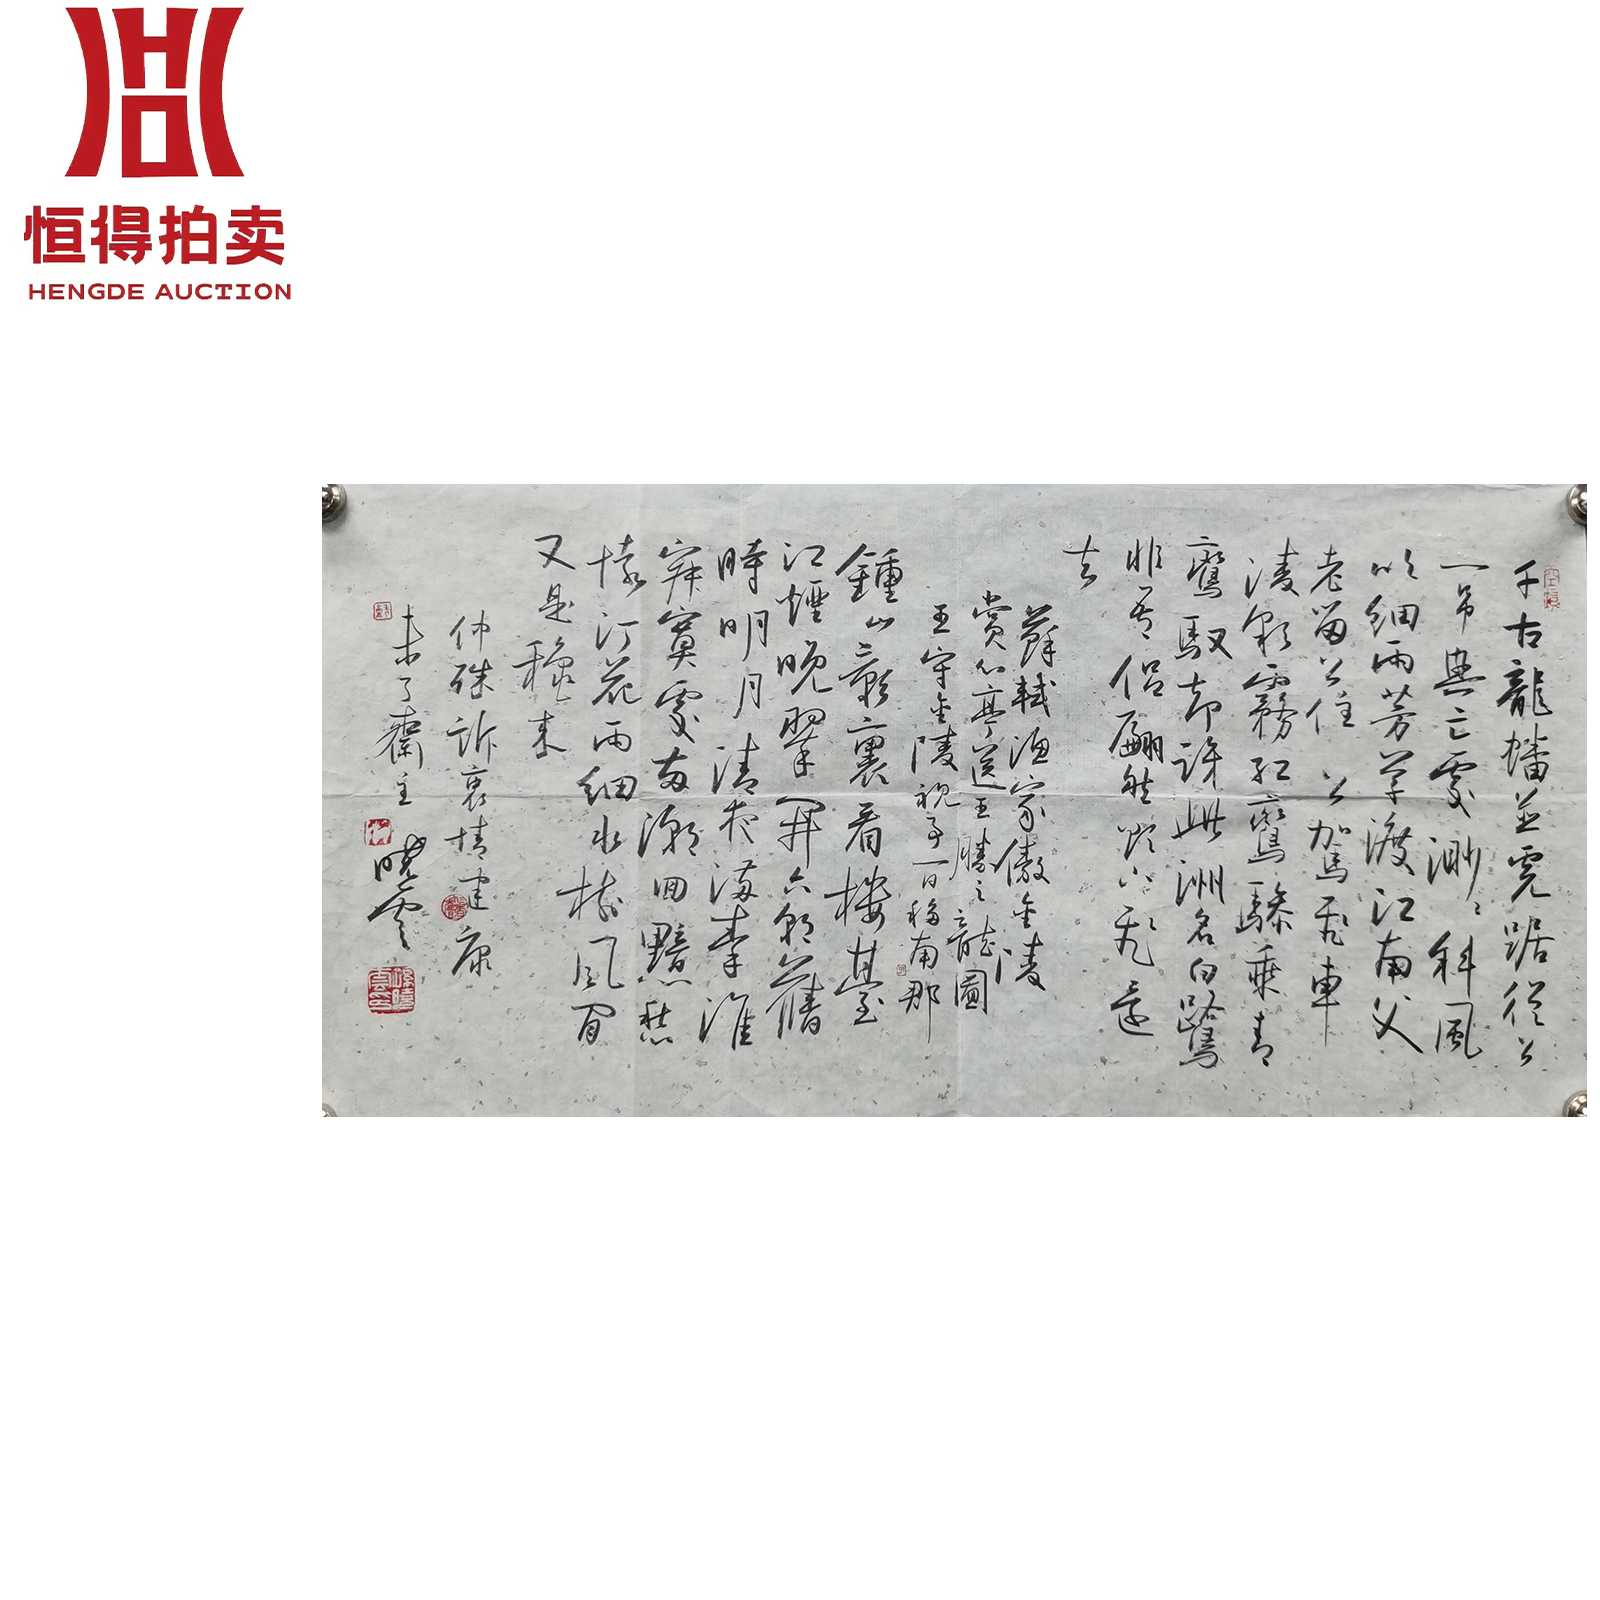 恒得拍卖
HENGDE AUCTION
千古龍蟠並虎踞從公
一弔興亡處渺〻斜風
吹細雨芳草渡江南父
老留公住公駕飛車
凌彩霧紅鸞驂乘青
鸞馭却訝此洲名白鷺
非吾侶翩然欲下飛還
去
蘇軾漁家傲金陵
賞心亭送王勝之龍圖
王守金陵視事一日移南郡
鍾山影裏看樓臺
江煙晚翠開六朝舊
時明月清夜滿秦淮
寂寞處兩潮回黯愁
懷汀花雨細水樹風閒
又是穐來
仲殊訴衷情建康
未了齋主曉雲
孫曉雲印